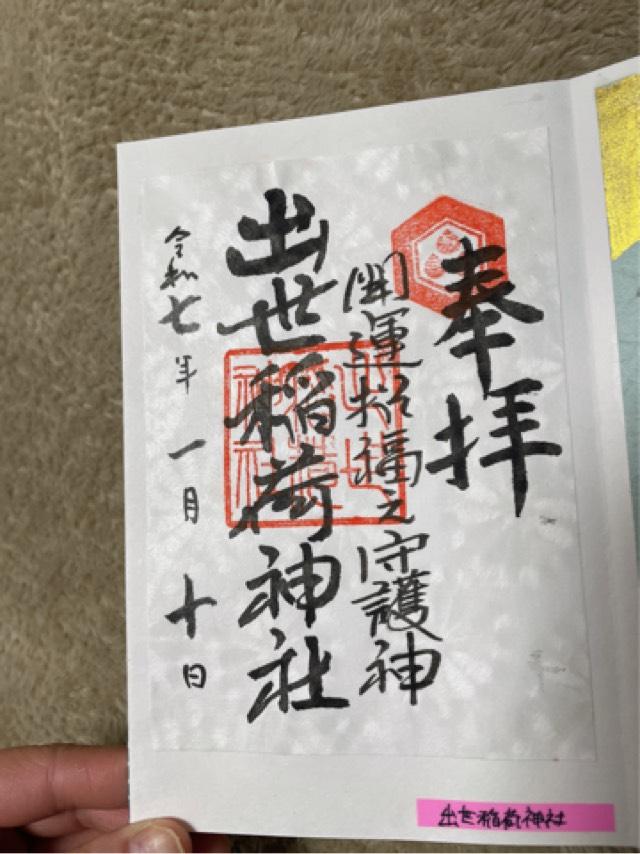 奉拝
開運招福之守護神
出世稲荷神社
令和七年 一月 十日
出世稲荷神社